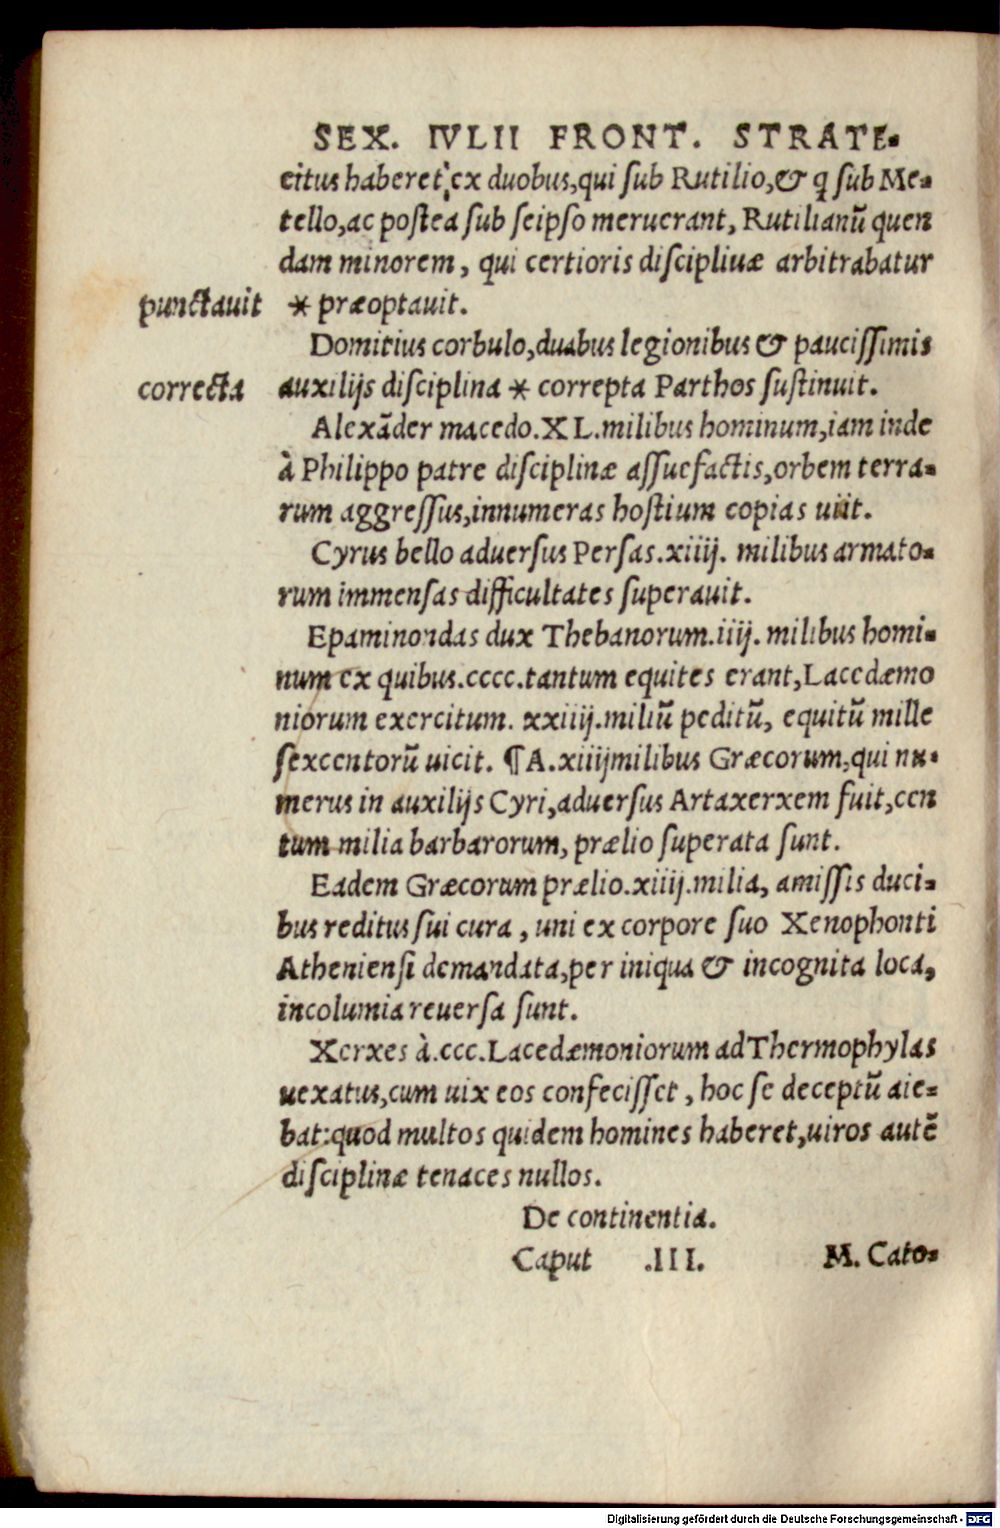 SEX. IVLII FRONT. STRATE-
citus haberet, ex duobus, qui sub Rutilio, & q sub Me-
tello, ac postea sub seipso meruerant, Rutilianū quen
dam minorem, qui certioris discipliuæ arbitrabatur
punctauit * præoptauit.
Domitius corbulo, duabus legionibus & paucissimis
correcta auxilijs disciplina * correpta Parthos sustinuit.
Alexāder macedo. XL. milibus hominum, iam inde
à Philippo patre disciplinæ assuefactis, orbem terra-
rum aggressus, innumeras hostium copias uiit.
Cyrus bello aduersus Persas. xiiij. milibus armato-
rum immensas difficultates superauit.
Epaminondas dux Thebanorum. iiij. milibus homi-
num ex quibus. cccc. tantum equites erant, Lacedæmo
niorum exercitum. xxiiij. miliū peditū, equitū mille
sexcentorū uicit. ¶ A. xiiij milibus Græcorum, qui nu-
merus in auxilijs Cyri, aduersus Artaxerxem fuit, cen
tum milia barbarorum, prælio superata sunt.
Eadem Græcorum prælio. xiiij. milia, amissis duci-
bus reditus sui cura, uni ex corpore suo Xenophonti
Atheniensi demandata, per iniqua & incognita loca,
incolumia reuersa sunt.
Xerxes à. ccc. Lacedæmoniorum ad Thermophylas
uexatus, cum uix eos confecisset, hoc se deceptū aie-
bat: quod multos quidem homines haberet, uiros autē
disciplinæ tenaces nullos.
De continentia.
Caput .III. M. Cato-
Digitalisierung gefördert durch die Deutsche Forschungsgemeinschaft - DFG